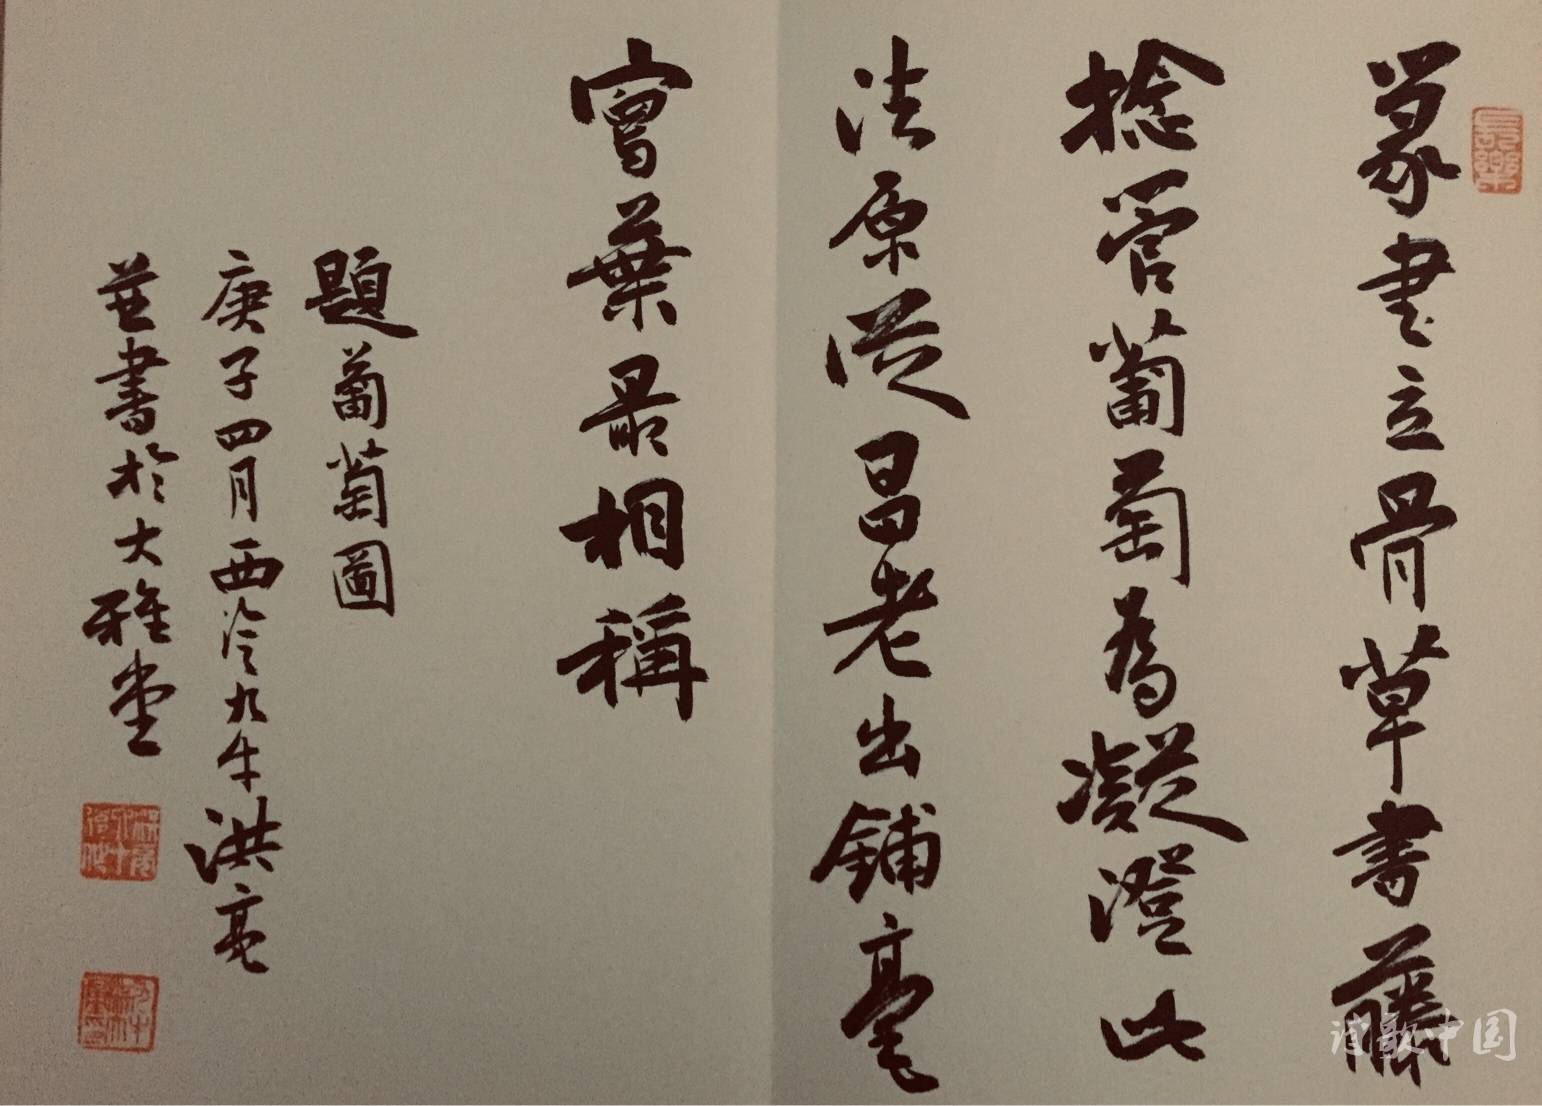 篆書立骨草書藤
捻管葡萄為凝澄此
法原從昌老出鋪毫
寫葉最相稱
題葡萄圖
庚子四月西泠九牛洪亮
並書於大雅堂
長樂
诗歌中国